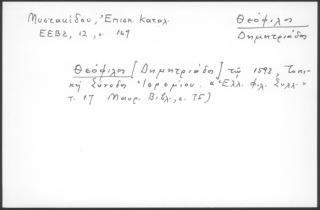 Μυστακίδου, Ἐπισκ. Καταλ.
ΕΕΒΣ, 12, σ. 169
Θεόφιλος
Δημητριάδος
Θεόφιλος [Δημητριάδος] τῷ 1593, Τοπι-
κὴ Σύνοδος Ἱερεμίου. «Ἑλλ. φιλ. Συλλ.»
τ. 17 Μαυρ. Βιβλ., σ. 75)